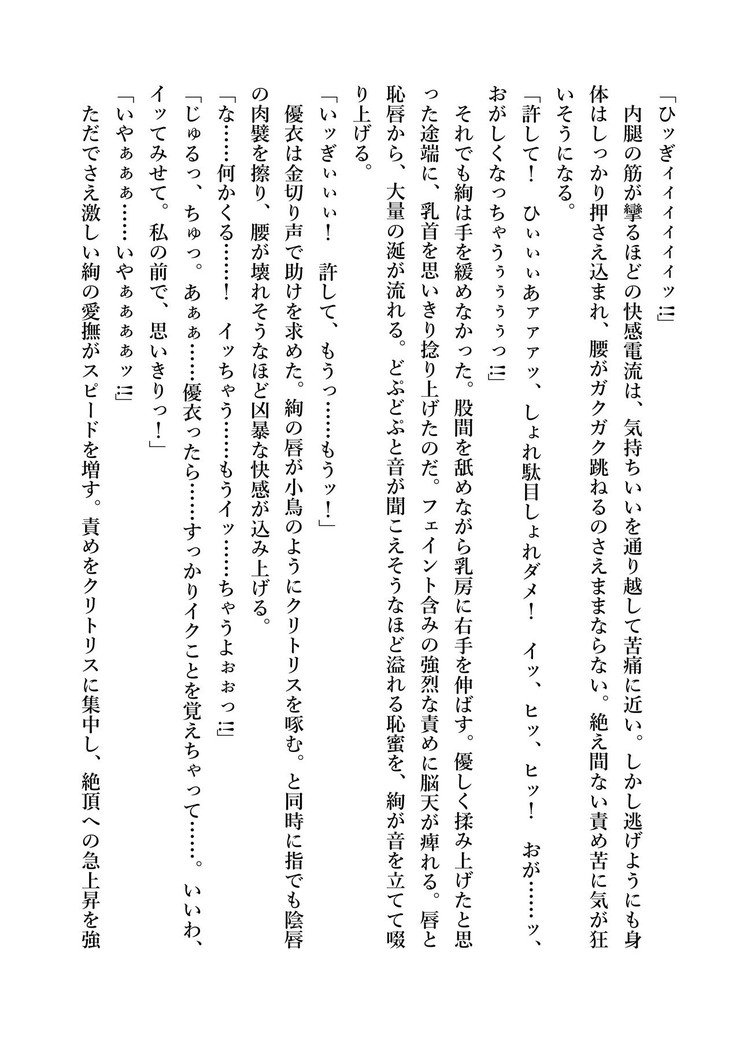 「ひッぎィイィイィイィッ!!」
　内腿の筋が攣るほどの快感電流は、気持ちいいを通り越して苦痛に近い。しかし逃げようにも身
体はしっかり押さえ込まれ、腰がガクガク跳ねるのさえままならない。絶え間ない責め苦に気が狂
いそうになる。
「許して！　ひぃぃぃあァァァッ、しょれ駄目しょれダメ！　イッ、ヒッ、ヒッ！　おが……ッ、
おがしくなっちゃうぅぅぅぅっ!!」
　それでも絢は手を緩めなかった。股間を舐めながら乳房に右手を伸ばす。優しく揉み上げたと思
った途端に、乳首を思いきり捻り上げたのだ。フェイント含みの強烈な責めに脳天が痺れる。唇と
恥唇から、大量の涎が流れる。どぷどぷと音が聞こえそうなほど溢れる恥蜜を、絢が音を立てて啜
り上げる。
「いッぎぃぃぃ！　許して、もうっ……もうッ！」
　優衣は金切り声で助けを求めた。絢の唇が小鳥のようにクリトリスを啄む。と同時に指でも陰唇
の肉襞を擦り、腰が壊れそうなほど凶暴な快感が込み上げる。
「な……何かくる……！　イッちゃう……もうイッ……ちゃうよぉぉっ!!」
「じゅるっ、ちゅっ。あぁぁ……優衣ったら……すっかりイクことを覚えちゃって……。いいわ、
イッてみせて。私の前で、思いきりっ！」
「いやぁぁぁ……いやぁぁぁぁッ!!」
　ただでさえ激しい絢の愛撫がスピードを増す。責めをクリトリスに集中し、絶頂への急上昇を強